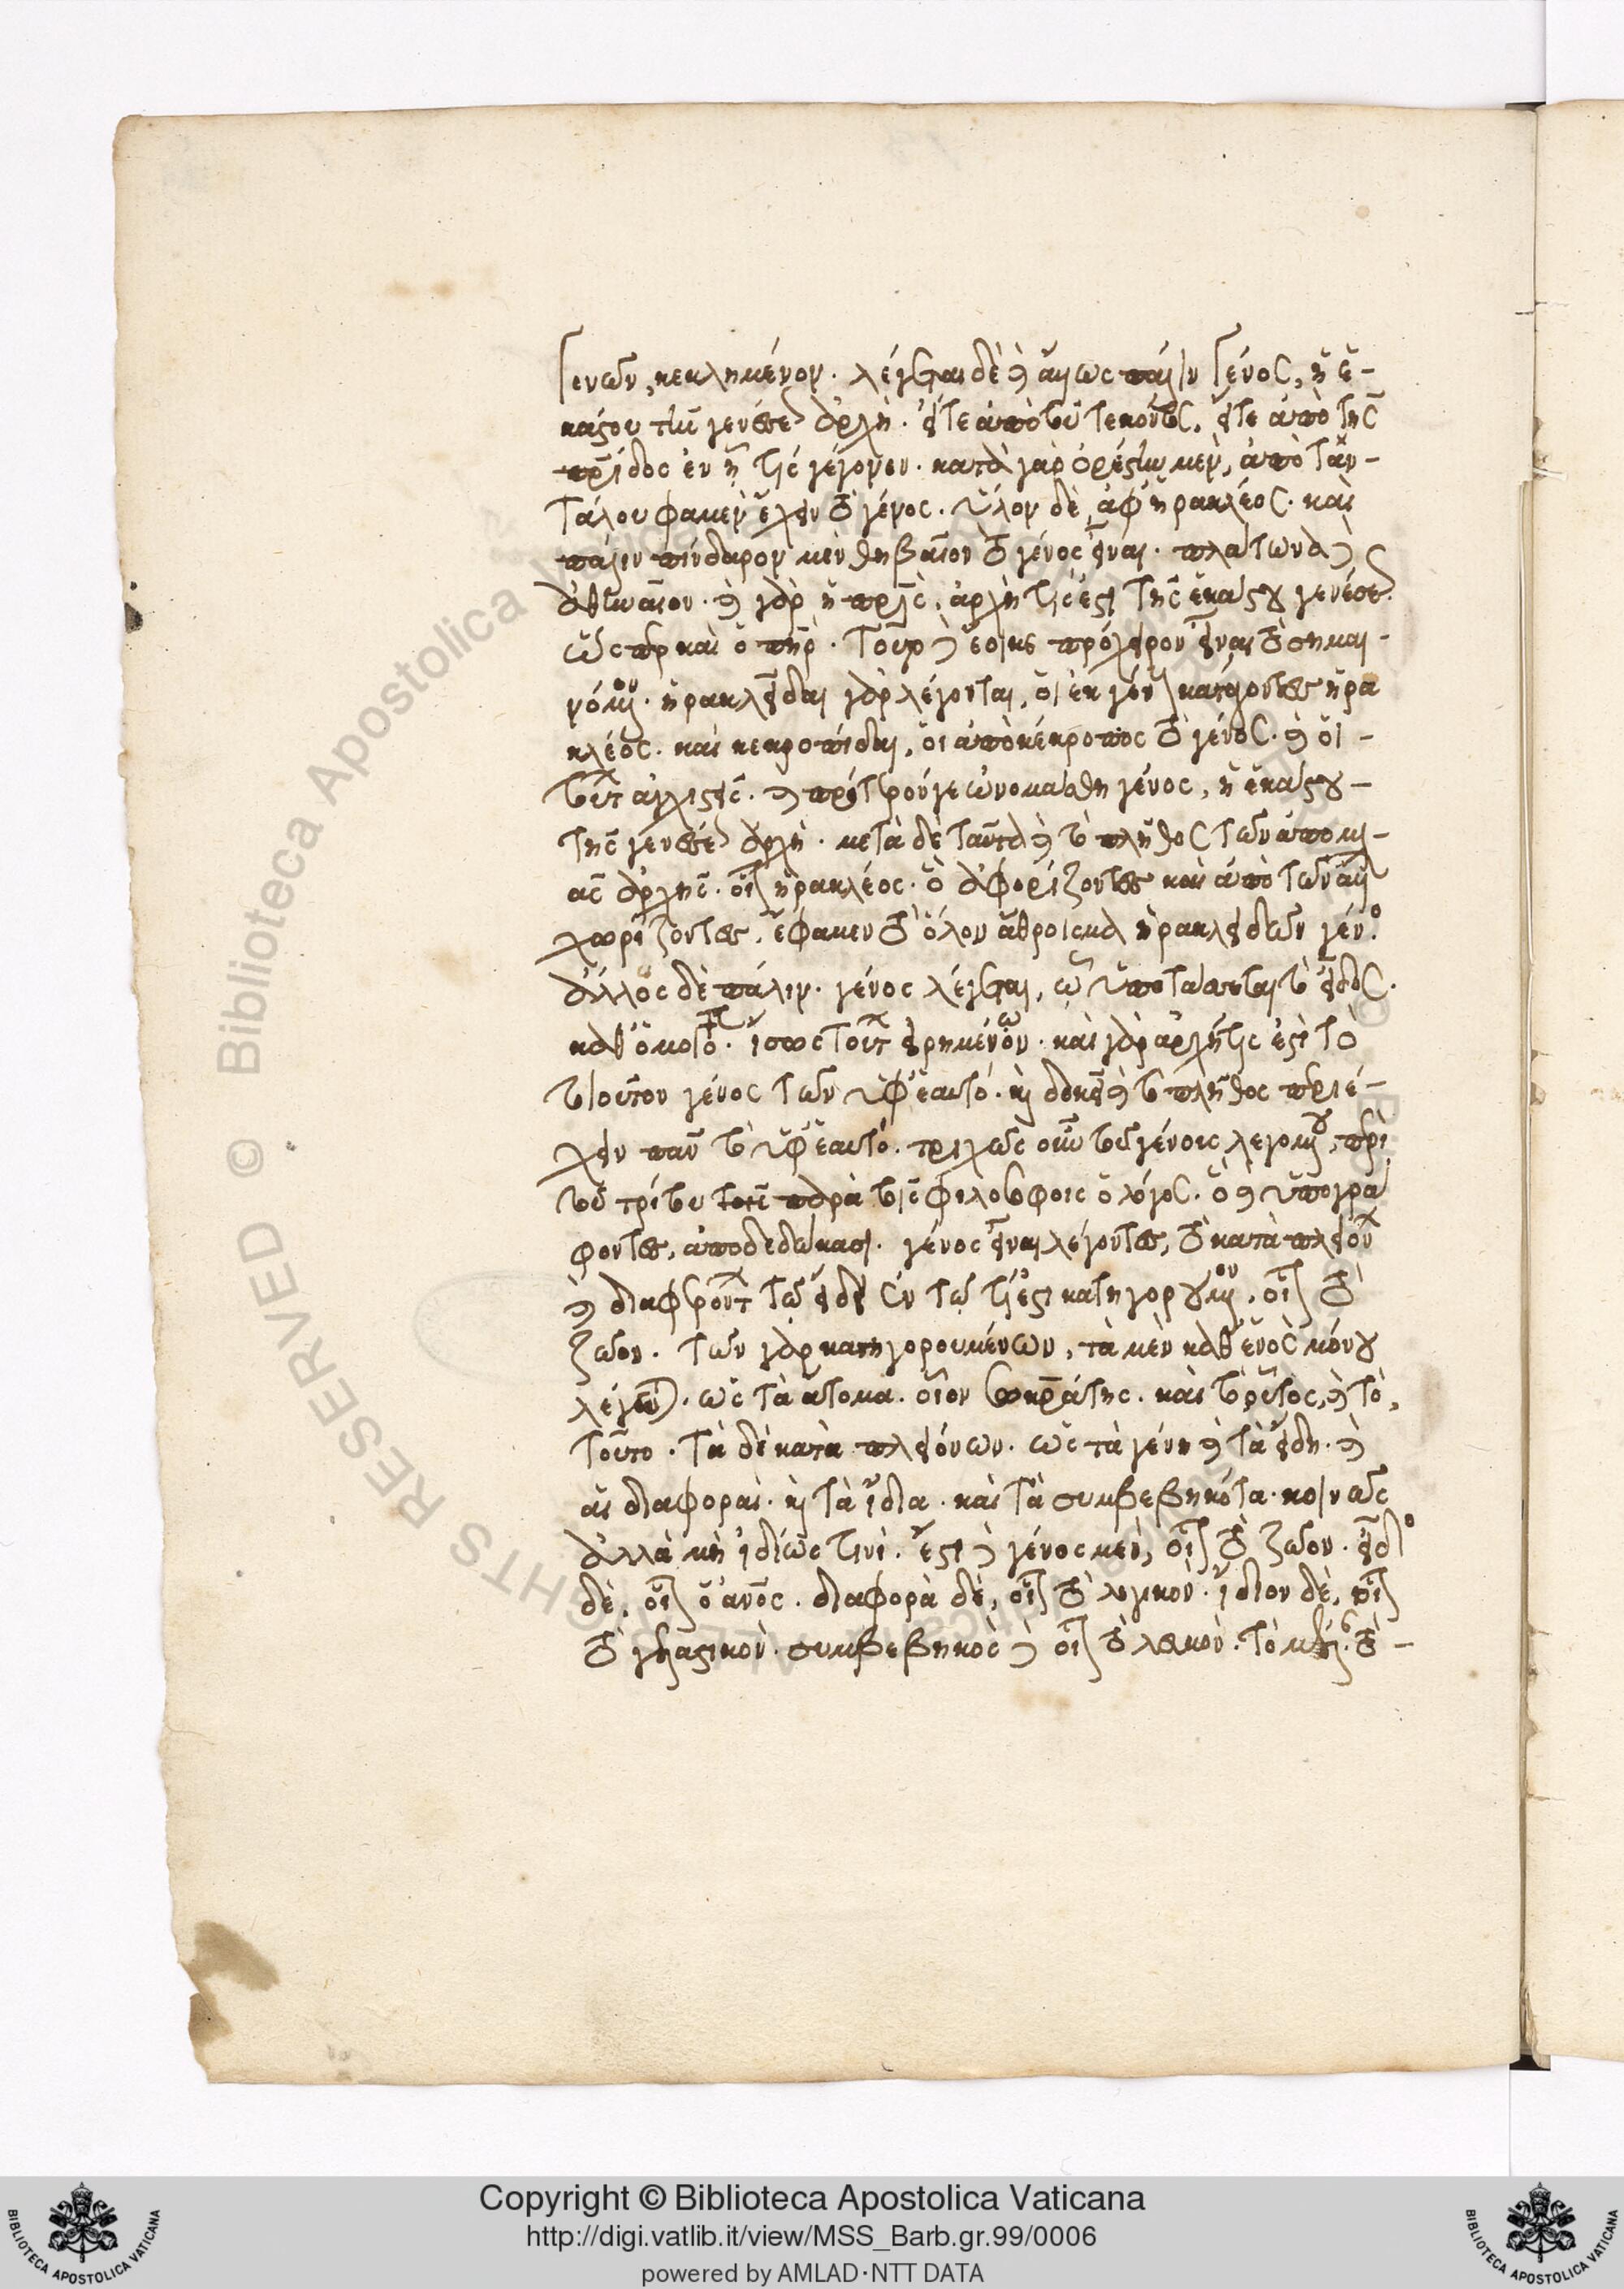 γενῶν, κεκλημένον. λέγεται δὲ καὶ ἄλλως πάλιν γένος, ἡ ἑ-
κάστου τῆς γενέσεως ἀρχὴ. εἴτε ἀπὸ τοῦ τεκόντος. εἴτε ἀπὸ τῆς
πατρίδος ἐν ᾗ τίς γέγονεν. κατὰ γὰρ ὀρέστην μὲν, ἀπὸ ταν-
τάλου φαμὲν ἔχειν τὸ γένος. ὕλλον δὲ, ἀφ' ἡρακλέος. καὶ
πάλιν πίνδαρον μὲν θηβαῖον τὸ γένος εἶναι. πλάτωνα δὲ
ἀθηναῖον. καὶ γὰρ ἡ πατρὶς, ἀρχή τίς ἐστι τῆς ἑκάστου γενέσεως.
ὥσπερ καὶ ὁ πατήρ. τοῦτο δὲ ἔοικε πρόχειρον εἶναι τὸ σημαι-
νόμενον. ἡρακλεῖδαι γὰρ λέγονται, οἱ ἐκ γένους κατάγοντες ἡρα
κλέος. καὶ κεκροπίδαι, οἱ ἀπὸ κέκροπος τὸ γένος. καὶ οἱ
τούτων ἀγχιστεῖς. καὶ πρότερόν γε ὠνομάσθη γένος, ἡ ἑκάστου
τῆς γενέσεως ἀρχὴ. μετὰ δὲ ταῦτα καὶ τὸ πλῆθος τῶν ἀπὸ μι-
ᾶς ἀρχῆς. οἷον ἡρακλέος. ὃ ἀφορίζοντες καὶ ἀπὸ τῶν ἄλλων
χωρίζοντες, ἔφαμεν τὸ ὅλον ἄθροισμα ἡρακλειδῶν γένος.
ἄλλως δὲ πάλιν. γένος λέγεται, ᾧ ὑποτάσσεται τὸ εἶδος.
καθ' ὁμοιότητα ἴσως τούτων εἰρημένον. καὶ γὰρ ἀρχή τις ἐστὶ τὸ
τοιοῦτον γένος τῶν ὑφ' ἑαυτό. καὶ δοκεῖ καὶ τὸ πλῆθος περιέ-
χειν πᾶν τὸ ὑφ' ἑαυτό. τριχῶς οὖν τοῦ γένους λεγομένου, περὶ
τοῦ τρίτου παρὰ τοῖς φιλοσόφοις ὁ λόγος. ὃ καὶ ὑπογρά
φοντες, ἀποδεδώκασι. γένος εἶναι λέγοντες, τὸ κατὰ πλειόνων
καὶ διαφερόντων τῷ εἴδει ἐν τῷ τί ἐστι κατηγορούμενον, οἷον τὸ
ζῶον. τῶν γὰρ κατηγορουμένων, τὰ μὲν καθ' ἑνὸς μόνου
λέγεται. ὡς τὰ ἄτομα. οἷον σωκράτης. καὶ τὸ οὗτος, καὶ τὸ,
τοῦτο. τὰ δὲ κατὰ πλειόνων. ὡς τὰ γένη καὶ τὰ εἴδη. καὶ
αἱ διαφοραὶ. καὶ τὰ ἴδια. καὶ τὰ συμβεβηκότα. κοινῶς
ἀλλὰ μὴ ἰδίως τινὶ. ἔστι δὲ γένος μὲν, οἷον τὸ ζῶον. εἶδος
δὲ, οἷον ὁ ἄνθρωπος. διαφορὰ δὲ, οἷον τὸ λογικὸν. ἴδιον δὲ, οἷον
τὸ γελαστικὸν. συμβεβηκὸς δὲ οἷον τὸ λευκὸν. τὸ
Copyright © Biblioteca Apostolica Vaticana
http://digi.vatlib.it/view/MSS_Barb.gr.99/0006
powered by AMLAD·NTT DATA